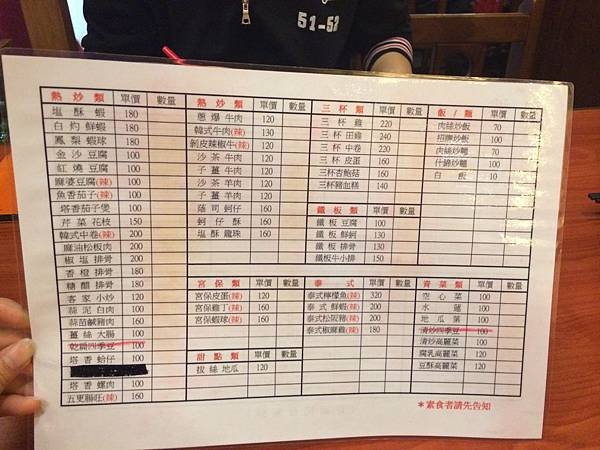 51-53
熱炒類 單價 數量
塩酥蝦 180
白灼鮮蝦 180
鳳梨蝦球 180
金沙豆腐 100
紅燒豆腐 100
麻婆豆腐(辣) 100
魚香茄子(辣) 100
塔香茄子煲 100
芹菜花枝 150
韓式中卷(辣) 200
麻油松板肉 200
椒塩排骨 200
香橙排骨 180
糖醋排骨 180
客家小炒 120
蒜泥白肉 100
蒜苗鹹豬肉 160
薑絲大腸 100
乾扁四季豆 100
塔香蛤仔 100
塔香螺肉 100
五更腸旺(辣) 160
熱炒類 單價 數量
蔥爆牛肉 120
韓式牛肉(辣) 130
剝皮辣椒牛(辣) 120
沙茶牛肉 120
子薑牛肉 120
沙茶羊肉 120
子薑羊肉 120
蔭司蚵仔 160
蚵仔酥 160
塩酥龍珠 160
宮保類 單價 數量
宮保皮蛋(辣) 120
宮保雞丁(辣) 160
宮保蝦球(辣) 160
甜點類 單價 數量
拔絲地瓜 120
三杯類 單價 數量
三杯雞 220
三杯田雞 240
三杯中卷 220
三杯皮蛋 160
三杯杏鮑菇 160
三杯豬血糕 140
鐵板類 單價 數量
鐵板豆腐 100
鐵板鮮蚵 130
鐵板排骨 130
鐵板牛小排 150
泰式 單價 數量
泰式檸檬魚(辣) 320
泰式鮮蝦(辣) 200
泰式松阪豬(辣) 200
泰式椒麻雞(辣) 180
飯/類 單價 數量
肉絲炒飯 70
招牌炒飯 100
肉絲炒麵 70
什錦炒麵 100
白飯 10
青菜類 單價 數量
空心菜 100
水蓮 100
地瓜葉 100
清炒四季豆 100
清炒高麗菜 100
腐乳高麗菜 120
豆酥高麗菜 120
*素食者請先告知